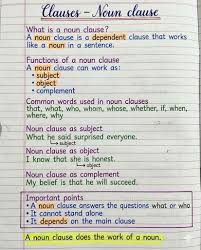 Clauses - Noun clause
What is a noun clause?
A noun clause is a dependent clause that works
like a noun in a sentence.
Functions of a noun clause
A noun clause can work as:
• subject
• object
• complement
Common words used in noun clauses
that, what, who, whom, whose, whether, if, when,
where, why
Noun clause as subject
What he said surprised everyone.
subject
Noun clause as object
I know that she is honest.
object
Noun clause as complement
My belief is that he will succeed.
Important points
• A noun clause answers the questions what or who
• It cannot stand alone
• It depends on the main clause
A noun clause does the work of a noun.